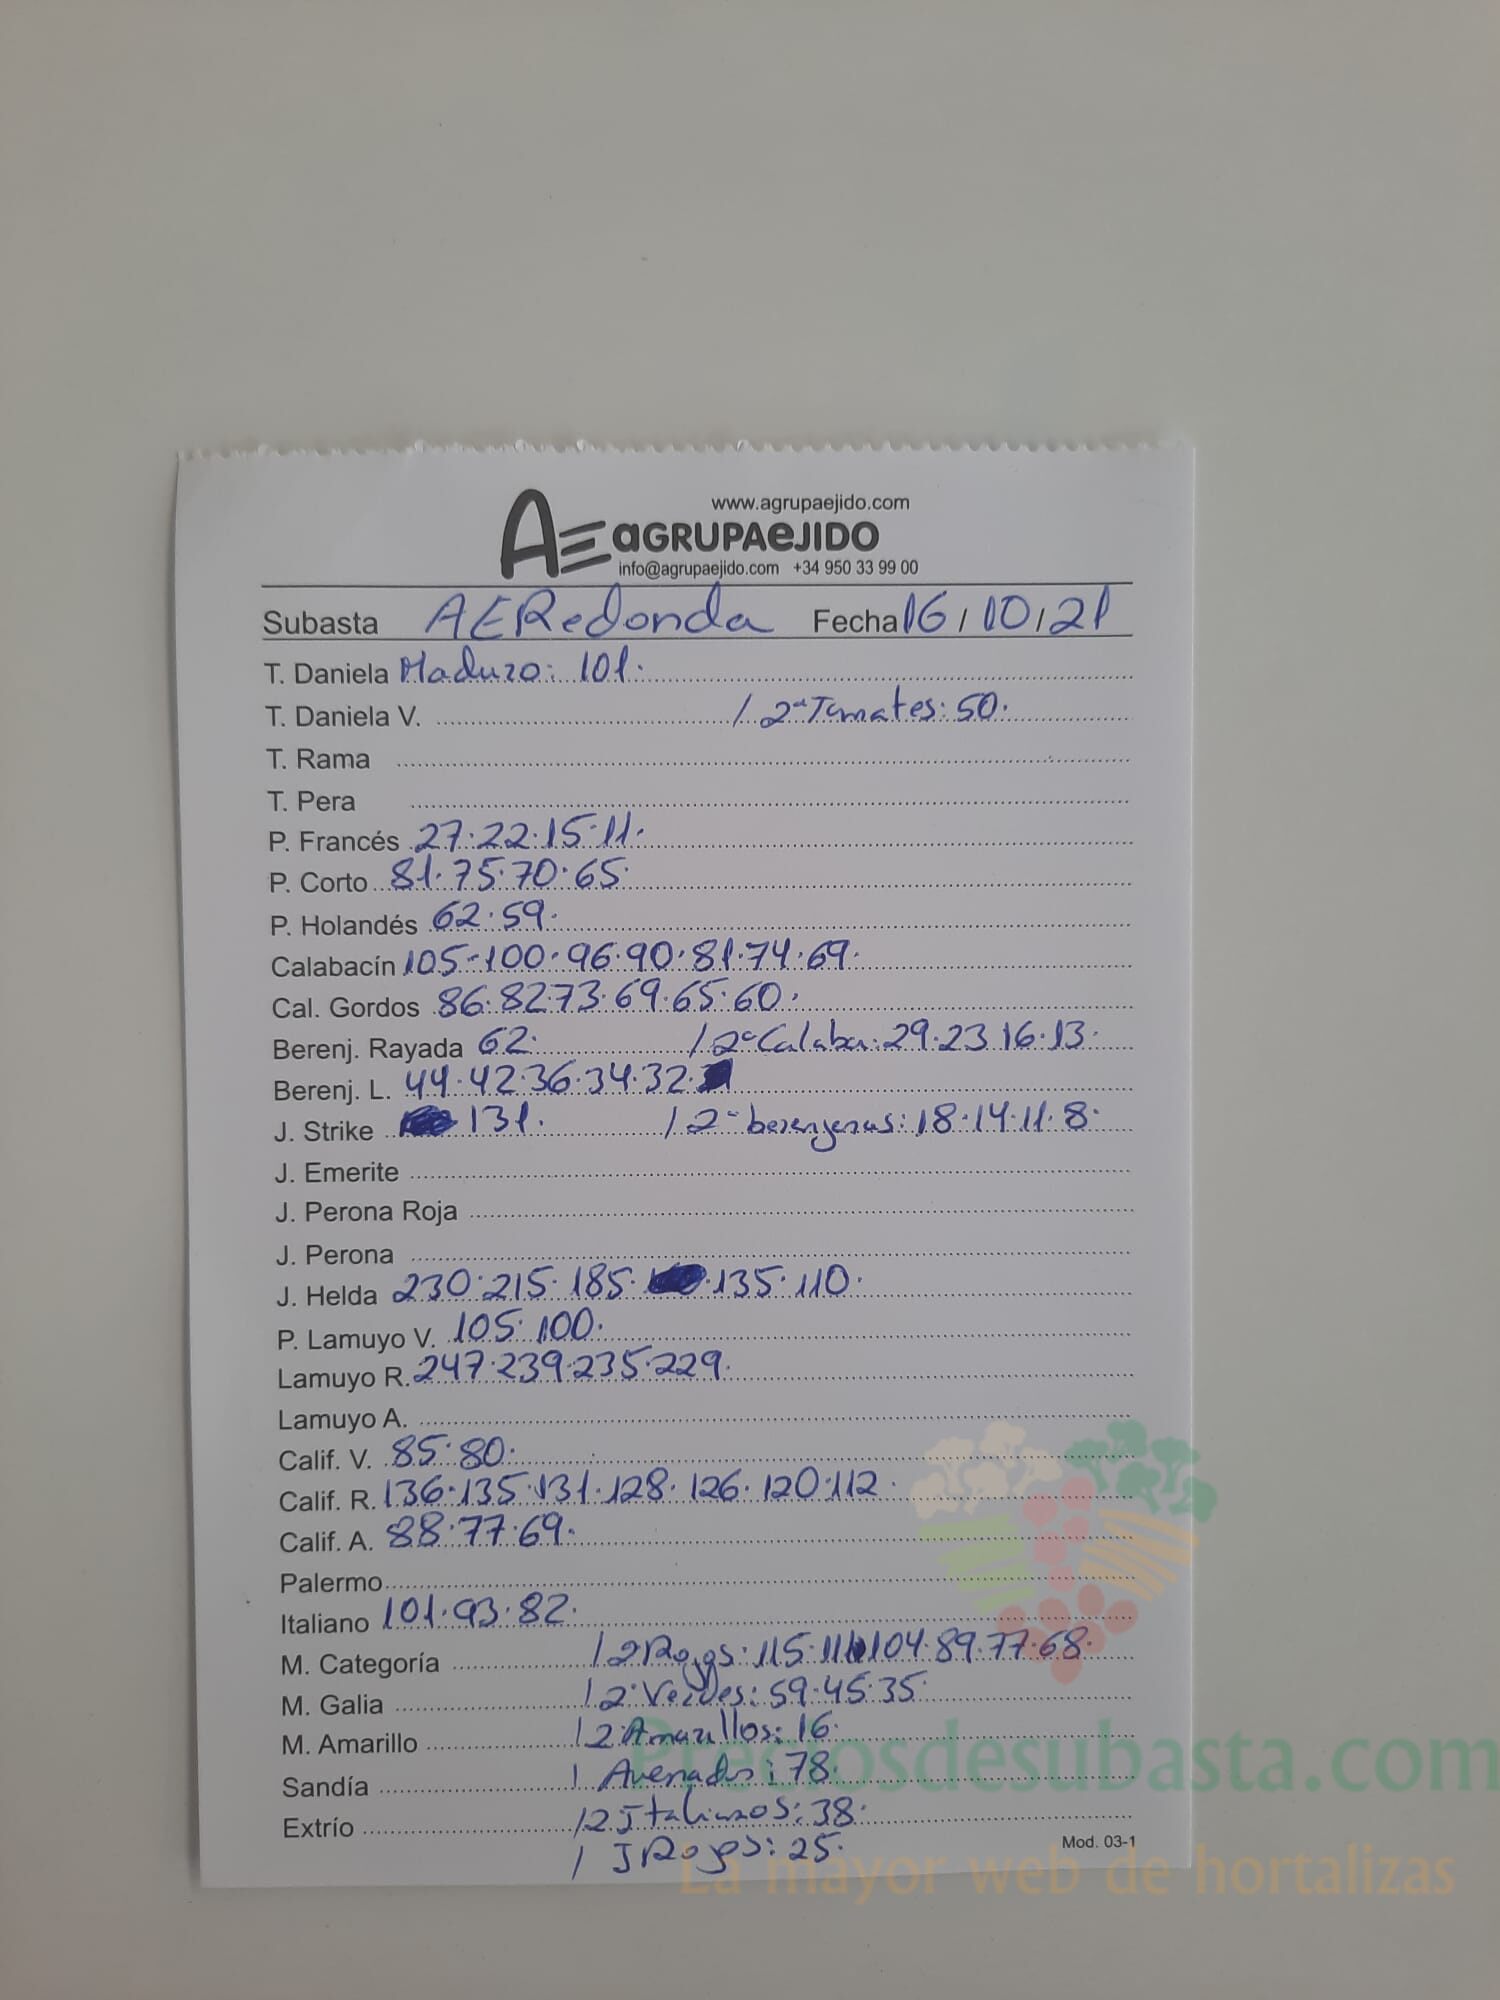 www.agrupaejido.com
AE aGRUPAeJIDO
info@agrupaejido.com +34 950 33 99 00
Subasta AERedonda Fecha 16/10/21
T. Daniela Maduro: 101.
T. Daniela V. / 2ª Tomates: 50.
T. Rama
T. Pera
P. Francés 27.22.15.11.
P. Corto 81.75.70.65.
P. Holandés 62.59.
Calabacín 105-100.96.90.81.74.69.
Cal. Gordos 86.82.73.69.65.60.
Berenj. Rayada 62. / 2ª Calaba: 29.23.16.13.
Berenj. L. 44.42.36.34.32.
J. Strike 131. / 2ª berenjenas: 18.14.11.8.
J. Emerite
J. Perona Roja
J. Perona
J. Helda 230.215.185. .135.110.
P. Lamuyo V. 105.100.
Lamuyo R. 247.239.235.229.
Lamuyo A.
Calif. V. 85.80.
Calif. R. 136.135.131.128.126.120.112.
Calif. A. 88.77.69.
Palermo
Italiano 101.93.82.
M. Categoría / 2 Rojos: 115. 104.89.77.68.
M. Galia / 2ª Verdes: 59.45.35.
M. Amarillo / 2 Amarillos: 16.
Sandía / Averiados: 78.
Extrío / 2 Italianos: 38.
/ I Rojos: 25.
Mod. 03-1
Preciosdesubasta.com
La mayor web de hortalizas